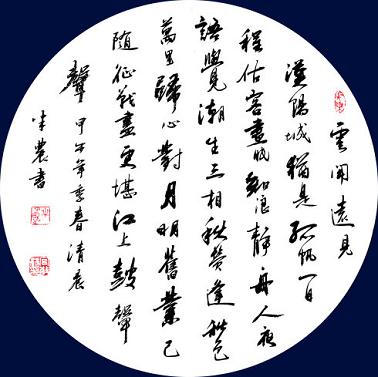 雲開遠見
漢陽城猶是孤帆一日
程估客晝眠知浪靜舟人夜
語覺潮生三相秋鬢逢秋色
萬里歸心對月明舊業已
随征戰盡更堪江上鼓鼙
聲
甲午年季春清晨
半農書